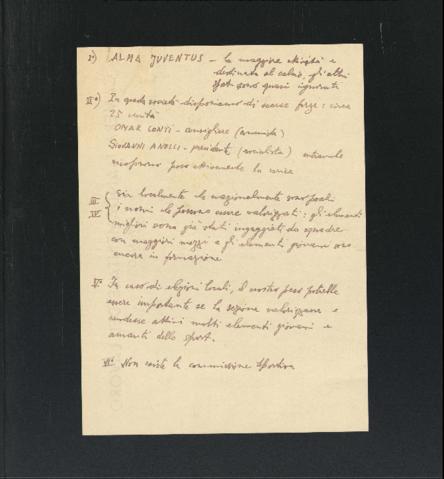 I°) ALMA JUVENTUS - la maggiore attività è
destinata al calcio, gli altri
sport sono quasi ignorati
II°) In questa società disponiamo di scarse forze: circa
25 unità
OMAR CONTI - consigliere (comunista)
GIOVANNI ANOLLI - presidente (socialista) entrambi
ricoprono poco attivamente la carica
III Sia localmente che nazionalmente sono pochi
IV i nomi che possono essere valorizzati: gli elementi
migliori sono già stati ingaggiati da squadre
con maggiori mezzi e gli elementi giovani sono
ancora in formazione
V° In caso di elezioni locali, il nostro peso potrebbe
essere importante se la sezione valorizzasse e
rendesse attivi molti elementi giovani e
amanti dello sport.
VI° Non esiste la commissione sportiva